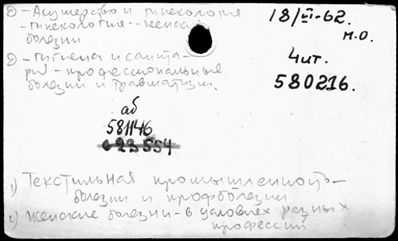 ②-Акушерство и гинекология
-гинекология--женские
болезни
②-гигиена и санита-
рия-профессиональные
болезни и травматизм.
18/III-62.
М.О.
4 ит.
580216.
аб
581146
623554
1) Текстильная промышленность-
болезни и профболезни
2) женские болезни-в условиях разных
профессий